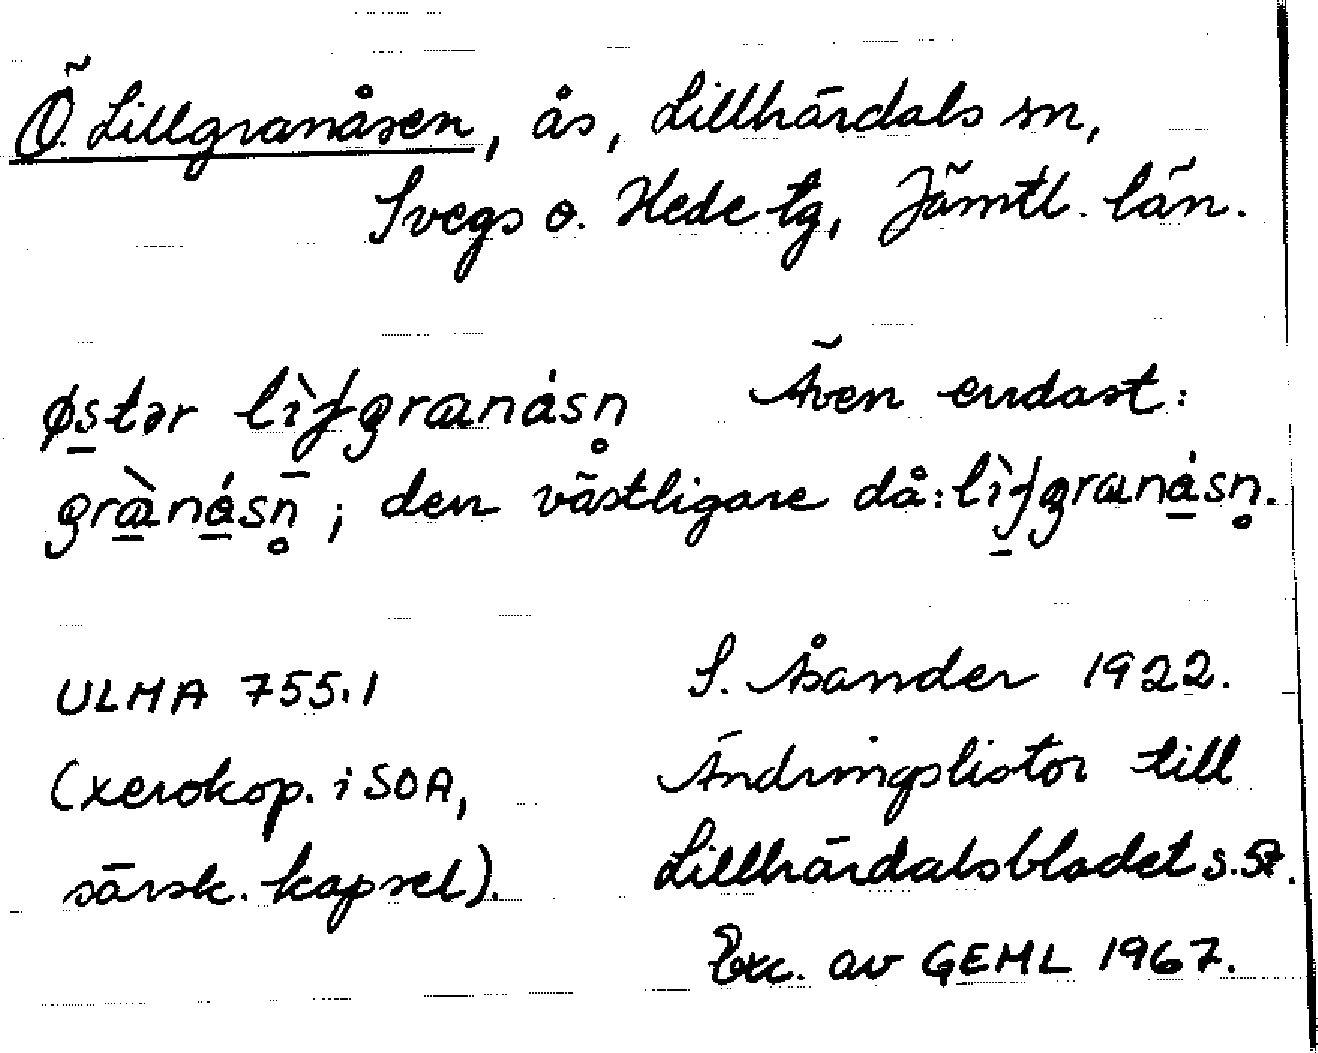 Ö. Lillgranåsen, ås, Lillhärdals sn,
Svegs o. Hede tg, Jämtl. län.
øs̠tər lìʃgranásn̥ Även endast:
grànásn̥; den västligare då: lìʃgranásn̥.
ULMA 755.1 S. Åsander 1922.
(xerokop. i SOA, Ändringslistor till
särsk. kapsel). Lillhärdalsbladet s.57.
Exc. av GEML 1967.